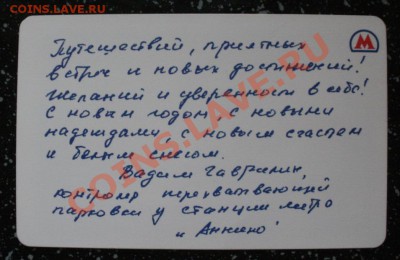 Путешествий, приятных
встреч и новых достижений!
Желаний и уверенности в себе!
С новым годом, с новыми
надеждами, с новым счастьем
и белым снегом.
Вадим Гавриник,
контролер перехватывающей
парковки у станции метро
"Аннино"
М
COINS.LAVE.RU
COINS.LAVE.RU